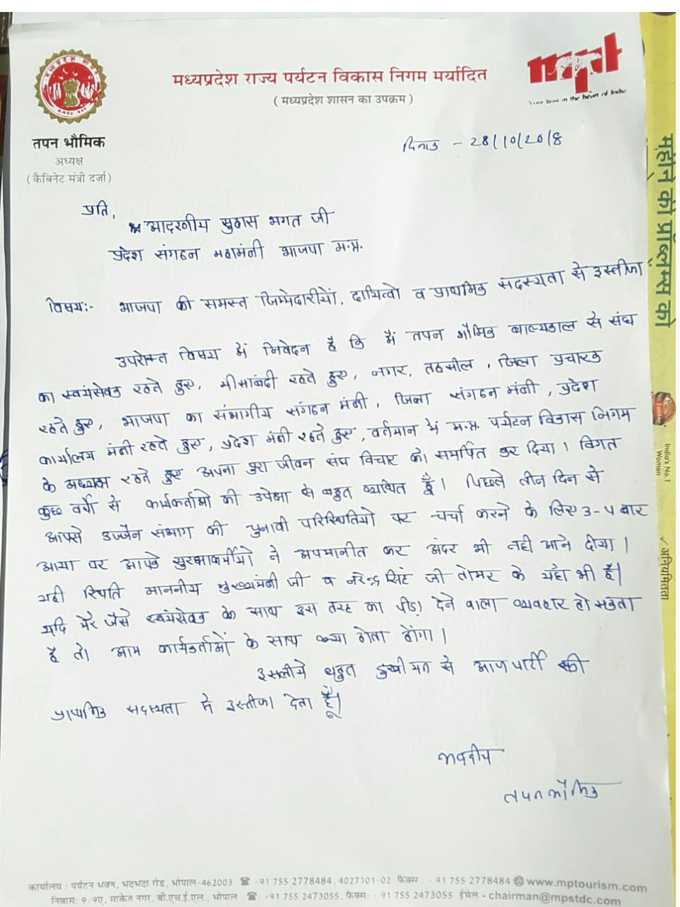 मध्यप्रदेश राज्य पर्यटन विकास निगम मर्यादित
( मध्यप्रदेश शासन का उपक्रम )
तपन भौमिक
अध्यक्ष
( कैबिनेट मंत्री दर्जा )
दिनांक - 28/10/2018
प्रति,
आदरणीय सुहास भगत जी
प्रदेश संगठन महामंत्री भाजपा म.प्र.
विषय:- भाजपा की समस्त जिम्मेदारीयों, दायित्वो व प्राथमिक सदस्यता से इस्तीफा
उपरोक्त विषय में निवेदन है कि मैं तपन भौमिक बाल्यकाल से संघ
का स्वयंसेवक रहते हुए, मीसाबंदी रहते हुए, नगर, तहसील, जिला प्रचारक
रहते हुए, भाजपा का संभागीय संगठन मंत्री, जिला संगठन मंत्री, प्रदेश
कार्यालय मंत्री रहते हुए, प्रदेश मंत्री रहते हुए, वर्तमान में म.प्र. पर्यटन विकास निगम
के अध्यक्ष रहते हुए अपना पुरा जीवन संघ विचार को समर्पित कर दिया। विगत
कुछ वर्षो से कार्यकर्ताओ की उपेक्षा से बहुत व्यथित हूँ। पिछले तीन दिन से
आपसे उज्जैन संभाग की चुनावी परिस्थितियो पर चर्चा करने के लिए 3-4 बार
आया पर आपके सुरक्षाकर्मीयो ने अपमानीत कर अंदर भी नही आने दीया।
यही स्थिति माननीय मुख्यमंत्री जी व नरेन्द्र सिंह जी तोमर के यहाँ भी है।
यदि मेरे जैसे स्वयंसेवक के साथ इस तरह का पीड़ा देने वाला व्यवहार हो सकता
है तो आम कार्यकर्ताओं के साथ क्या होता होंगा।
इसलीये बहुत दुखी मन से आज पार्टी की
प्राथमिक सदस्यता से इस्तीफा देता हूँ।
भवदीय
तपन भौमिक
कार्यालय : पर्यटन भवन, भदभदा रोड, भोपाल-462003 ☎ -91 755 2778484, 4027101-02 फेक्स : -91 755 2778484 www.mptourism.com
निवास: 9/9ए, साकेत नगर, बी.एच.ई.एल., भोपाल ☎ -91 755 2473055, फेक्स: - 91 755 2473055 ईमेल - chairman@mpstdc.com
India's No.1
अनियमितता